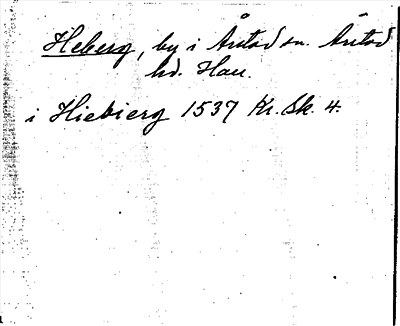 Heberg, by i Årstad sn. Årstad
hd. Hall.
i Hiebierg 1537 Kr. Sk. 4.